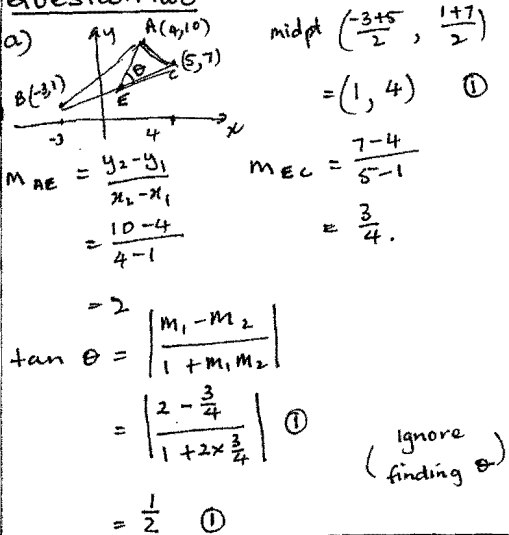 Question Two
a)
y
A(4,10)
C(5,7)
B(-3,1)
θ
E
-3
4
x
midpt (-3+5/2 , 1+7/2)
= (1, 4) ①
m AE = y₂-y₁/x₂-x₁
= 10-4/4-1
= 2
m EC = 7-4/5-1
= 3/4.
tan θ = |m₁-m₂/1+m₁m₂|
= |2-3/4/1+2×3/4| ①
(Ignore finding θ)
= 1/2 ①